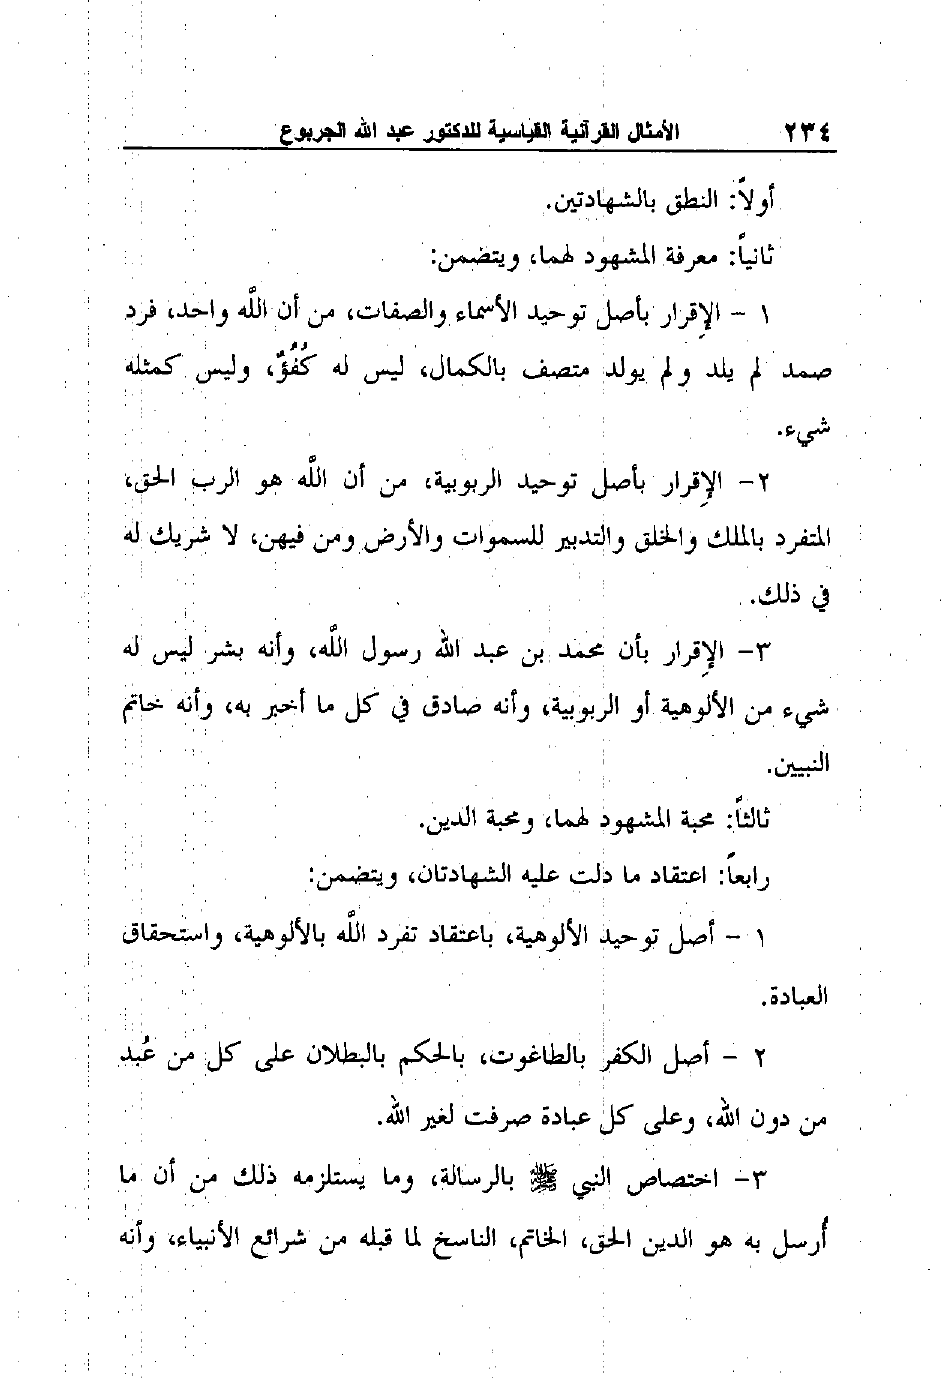 ٢٣٤ الأمثال القرآنية القياسية للدكتور عبد الله الجربوع
أولاً: النطق بالشهادتين.
ثانياً: معرفة المشهود لهما، ويتضمن:
١ - الإقرار بأصل توحيد الأسماء والصفات، من أن اللَّه واحد، فرد
صمد لم يلد ولم يولد متصف بالكمال، ليس له كُفُؤٌ، وليس كمثله
شيء.
٢- الإقرار بأصل توحيد الربوبية، من أن اللَّه هو الرب الحق،
المتفرد بالملك والخلق والتدبير للسموات والأرض ومن فيهن، لا شريك له
في ذلك.
٣- الإقرار بأن محمد بن عبد الله رسول اللَّه، وأنه بشر ليس له
شيء من الألوهية أو الربوبية، وأنه صادق في كل ما أخبر به، وأنه خاتم
النبيين.
ثالثاً: محبة المشهود لهما، ومحبة الدين.
رابعاً: اعتقاد ما دلت عليه الشهادتان، ويتضمن:
١ - أصل توحيد الألوهية، باعتقاد تفرد اللَّه بالألوهية، واستحقاق
العبادة.
٢ - أصل الكفر بالطاغوت، بالحكم بالبطلان على كل من عُبد
من دون الله، وعلى كل عبادة صرفت لغير الله.
٣- اختصاص النبي ﷺ بالرسالة، وما يستلزمه ذلك من أن ما
أُرسل به هو الدين الحق، الخاتم، الناسخ لما قبله من شرائع الأنبياء، وأنه